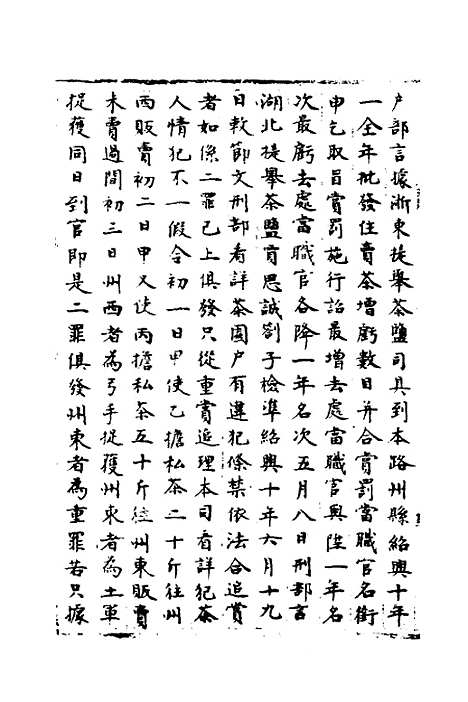 户部言據浙東提舉茶鹽司具到本路州縣紹興十年
一全年批發住賣茶增虧數目并合賞罰當職官名銜
申乞取旨賞罰施行詔最增去處當職官與陞一年名
次最虧去處當職官各降一年名次五月八日刑部言
湖北提舉茶鹽賈思誠劄子檢準紹興十年六月十九
日敕節文刑部看詳茶園户有違犯條禁依法合追賞
者如係二罪已上俱發只從重賞追理本司看詳犯茶
人情犯不一假令初一日甲使乙擔私茶二十斤往州
西販賣初二日甲又使丙擔私茶五十斤往州東販賣
未賣過間初三日州西者為弓手捉獲州東者為土軍
捉獲同日到官即是二罪俱發州東者為重罪若只據